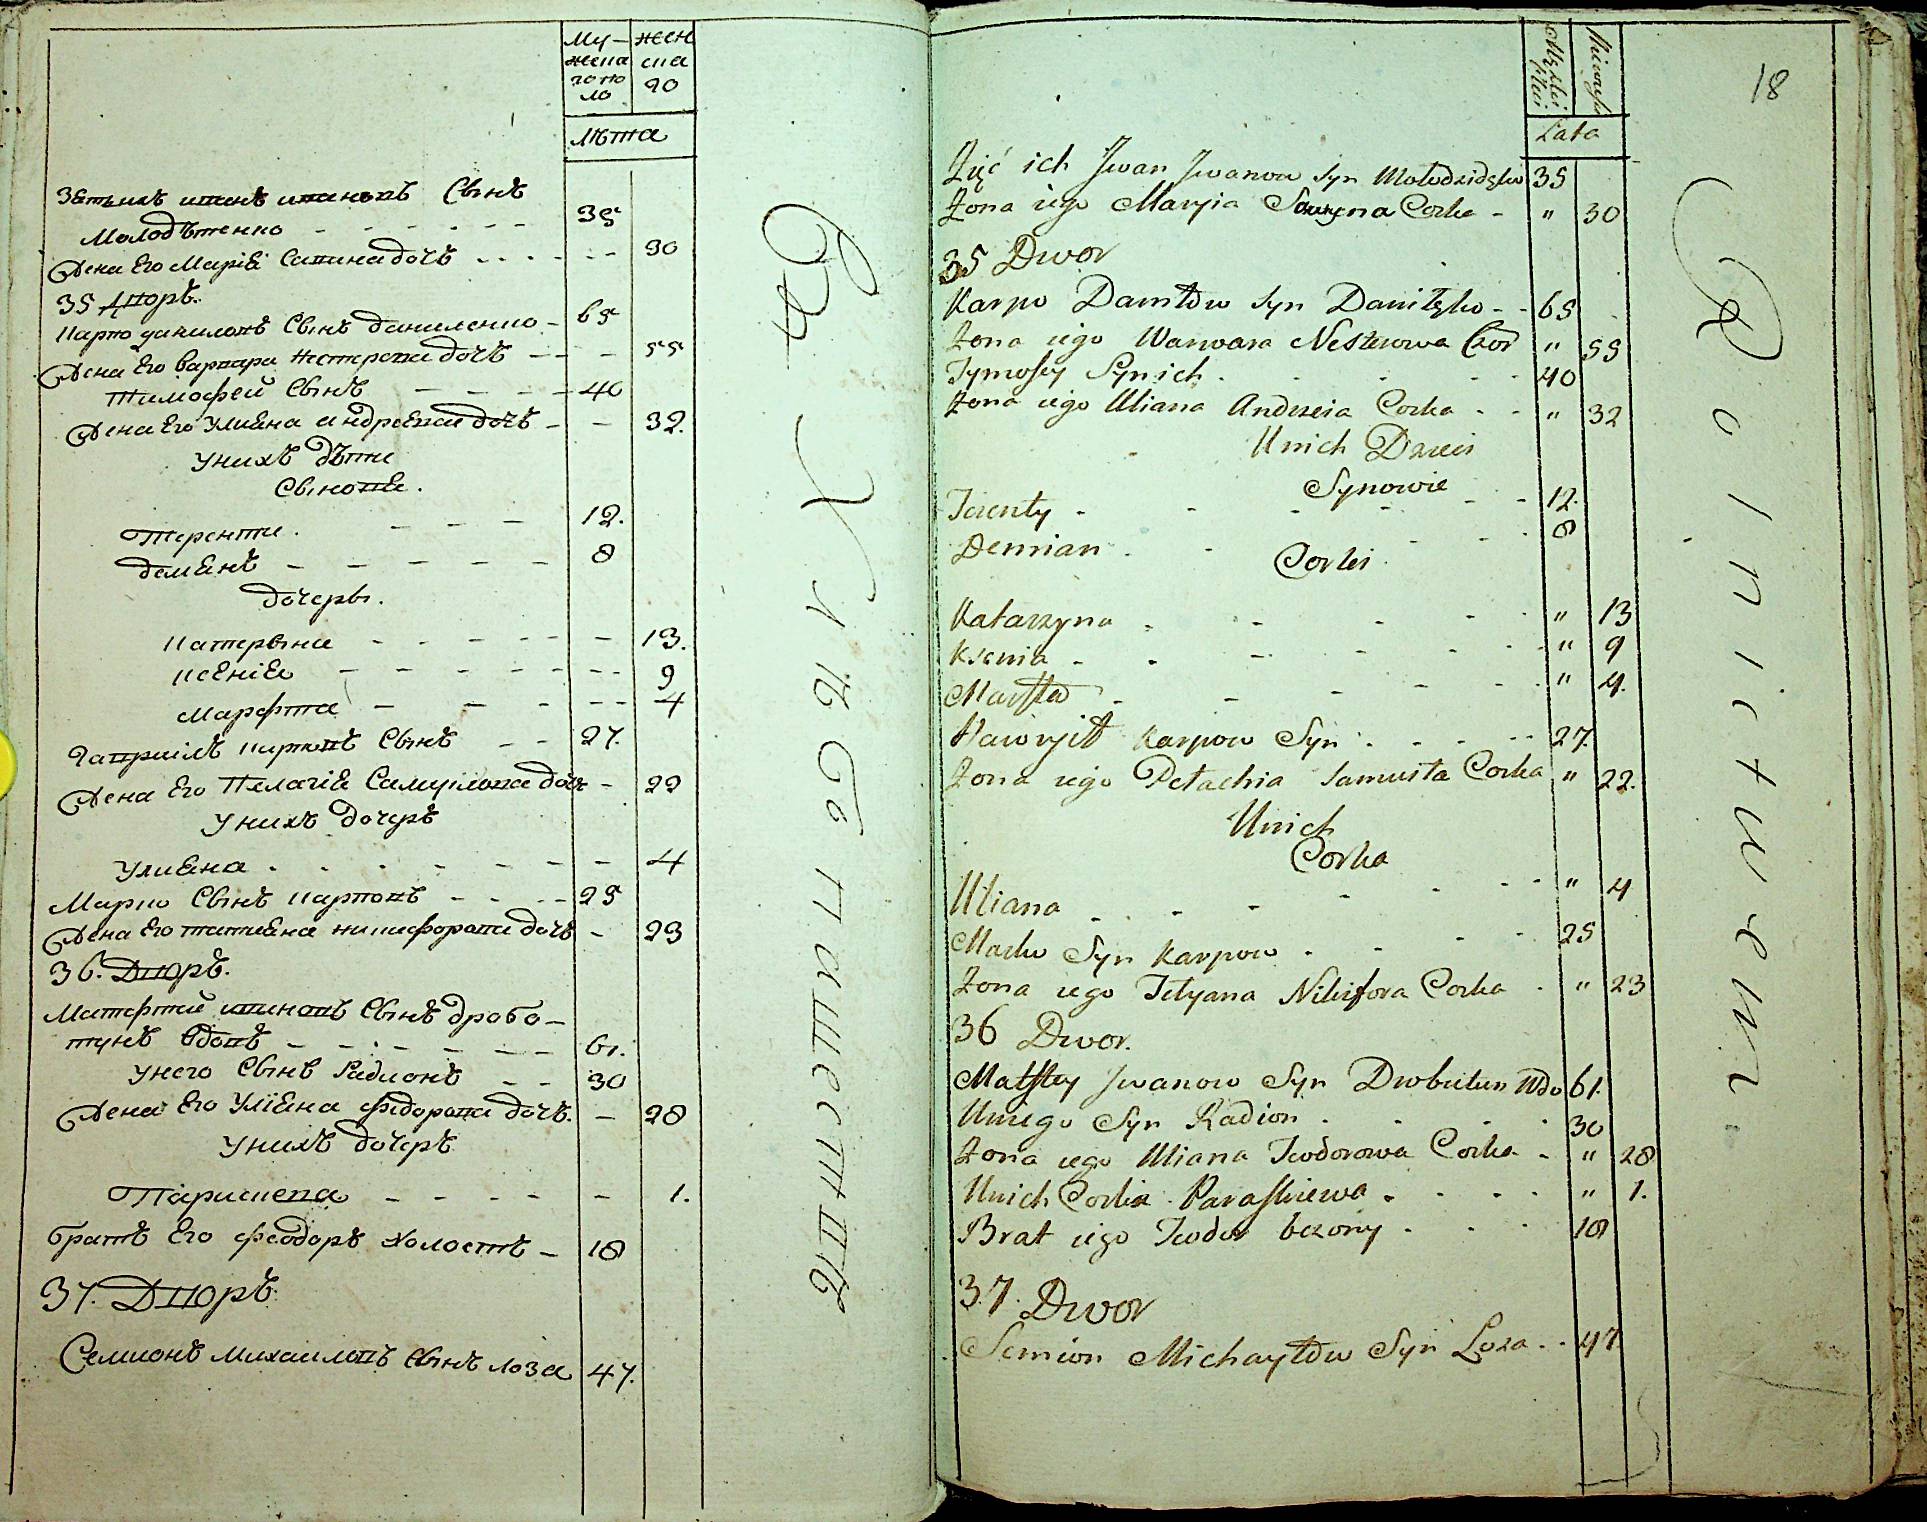 Му-
жеска
го по
ла
жен
ска
го
Лѣта
Зять ихъ иванъ ивановъ Сынъ
Молодѣченко - - - - - - 35
Жена Его Марія Савина дочъ - - - - - - 30
35 Дворъ.
Карпо данило́въ Сынъ даниленко - 65
Жена Его варвара нестерова дочъ - - - 55
Тимофей Сынъ - - - - 40
Жена Его Улияна андреева дочъ - - 32.
У нихъ дѣти
Сынове.
Терентей. - - - 12.
демянъ - - - - - 8
дочеры.
Катерына - - - - - - 13.
Ксенія - - - - - - - 9
Марфта - - - - - - 4
Гаврыилъ карповъ Сынъ - - 27.
Жена Его Пелагія Самуилова дочъ - 22
У нихъ дочеръ
Улияна - - - - - - 4
Марко Сынъ карповъ - - - - 25
Жена Его татияна никифорова дочъ - 23
36. Дворъ.
Матфтей ивановъ Сынъ дробо-
тунъ вдовъ - - - - - - 61.
у него Сынъ Радионъ - - 30
Жена Его Уліяна фіодорова дочъ. - 28
У нихъ дочеръ
Параскева - - - - - 1.
братъ Его феодоръ холостъ - 18
37. Дворъ
Семионъ михаиловъ сынъ лоза 47.
Lata
18
Zięć ich Jwan Jwanow Syn Mołodzidzko 35
Żona iego Maryia Sawyna Corka - " 30
35 Dwor
Karpo Daniłow Syn Daniłzko - - 65
Żona iego Warwara Nesterowa Cor " 55
Tymofey Syn ich - - - 40
Żona iego Uliana Andreia Corka - - " 32
U nich Dzieci
Synowie
Terenty - - - - - 12.
Demian - - - - 8
Corki
Katarzyna - - - - " 13
Ksenia - - - - - " 9
Marfta - - - - - " 4.
Hawryił Karpow Syn - - - - 27.
Żona iego Pełachia Samuiła Corka " 22.
U nich
Corka
Uliana - - - - - " 4
Marko Syn Karpow - - - - 25
Żona iego Tetyana Nikifora Corka - " 23
36 Dwor.
Matftey Jwanow Syn Drobutun Wdo 61.
U niego Syn Radion - - - 30
Żona iego Uliana Teodorowa Corka - " 28
U nich Corka Paraskiewa - - - - " 1.
Brat iego Teodor bezżony - - - 18
37. Dwor
Semion Michayłow Syn Loza - - 47